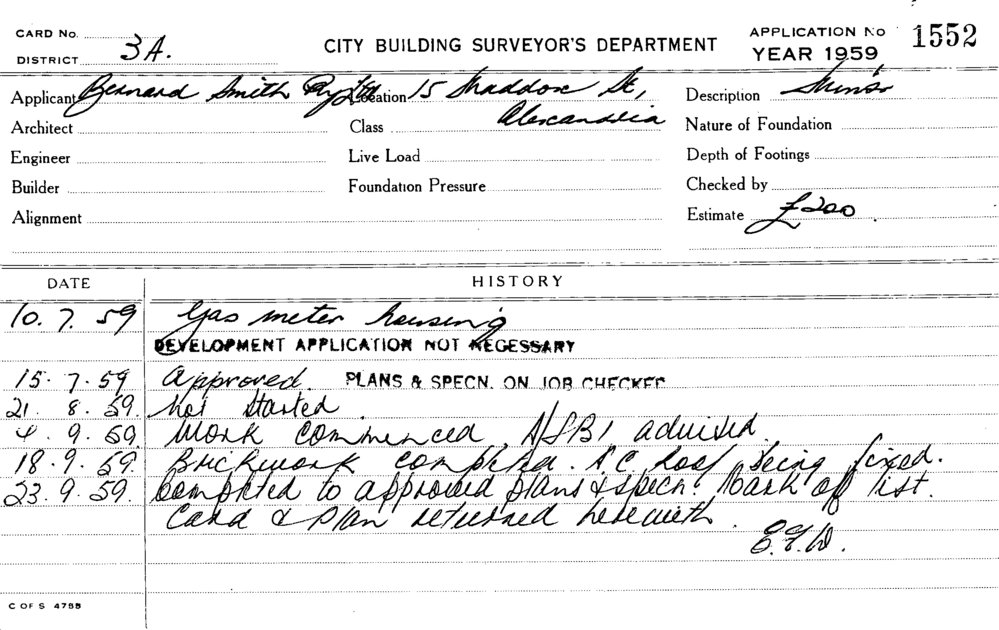 CARD No.
DISTRICT 3A.
CITY BUILDING SURVEYOR'S DEPARTMENT
APPLICATION No 1552
YEAR 1959
Applicant Bernard Smith Pty Ltd Location 15 Maddox St, Description Minor
Architect Class Alexandria Nature of Foundation
Engineer Live Load Depth of Footings
Builder Foundation Pressure Checked by
Alignment Estimate £200
DATE HISTORY
10. 7. 59 Gas meter housing
DEVELOPMENT APPLICATION NOT NECESSARY
15. 7. 59 Approved. PLANS & SPECN. ON JOB CHECKED
21. 8. 59. Not started.
4. 9. 59. Work commenced. advised.
18. 9. 59. Brickwork completed. A.C. roof being fixed.
23. 9. 59. Completed to approved plans & specn. Mark off list.
Card & plan returned herewith.
C OF S 4785